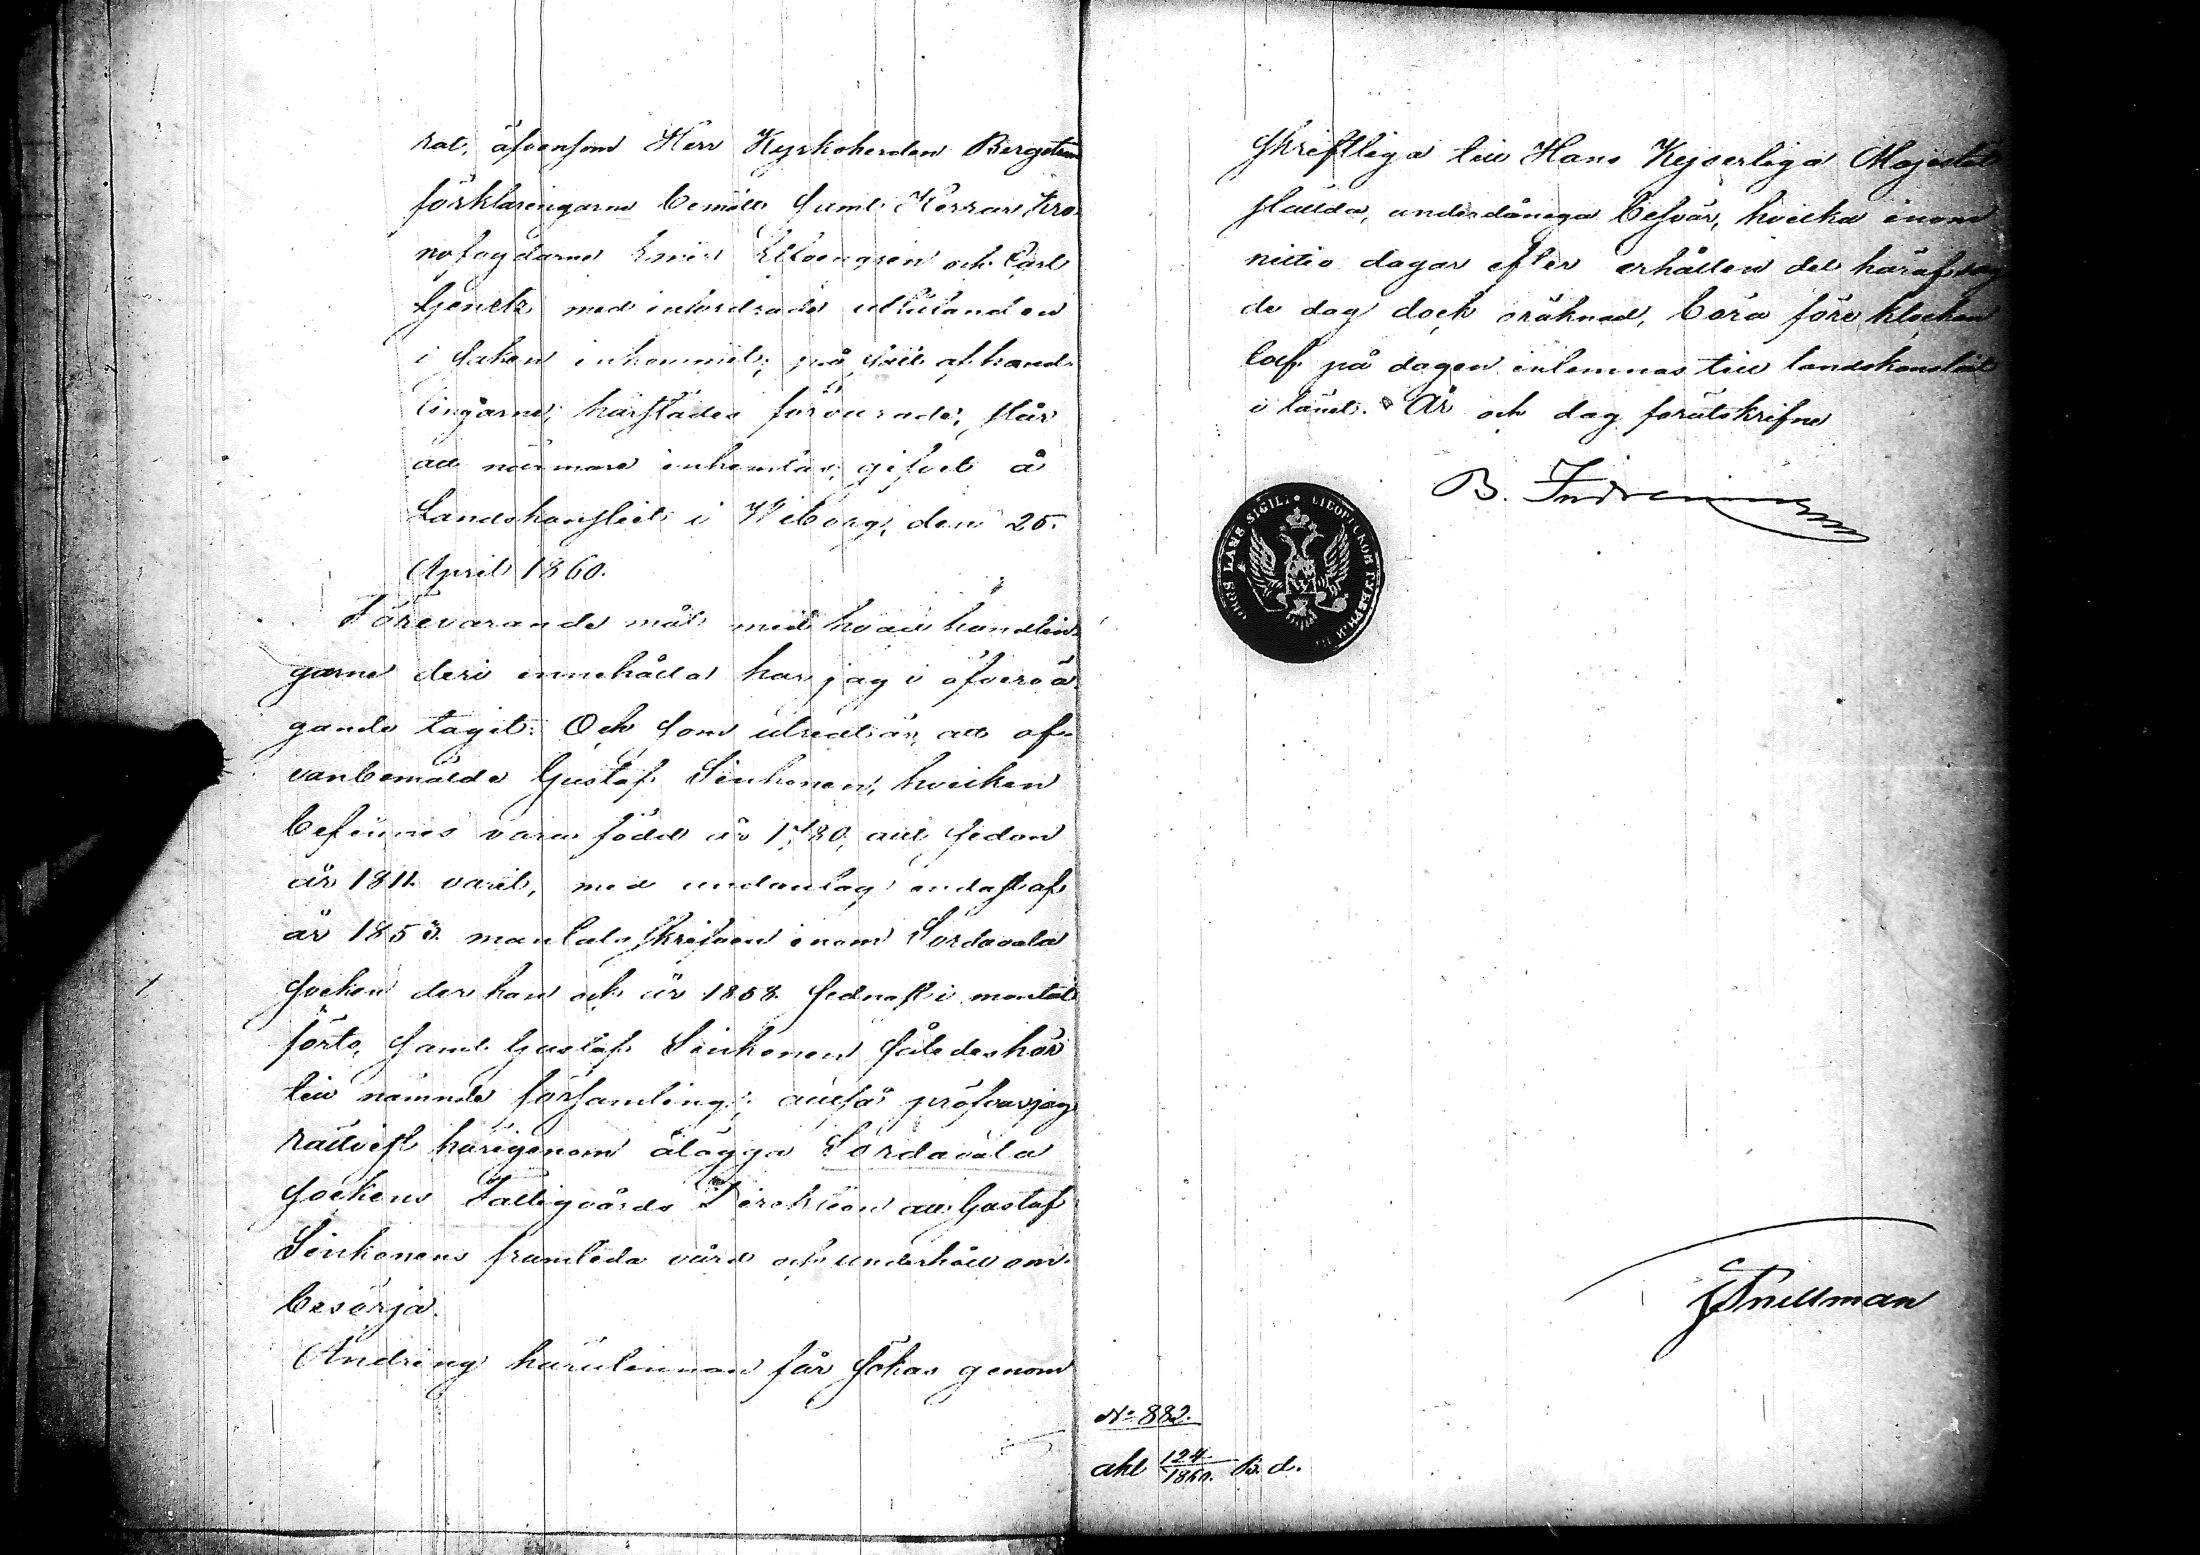 rat, äfvensom Herr Kyrkoherden Bergström
förklaringarne bemält samt Herrar Kro-
nofogdarne Emil Elfvengren och Carl
Genetz med infordrade utlåtanden
i saken inkommit; på sätt af hand-
lingarne, härstädes förvarade, står
att närmare inhemtas; gifvet å
Landskansliet i Wiborg, den 25.
April 1860.
Förevarande mål med hvad handlin-
garne deri innehålla har jag i öfverä-
gande tagit. Och som utredt är, att of-
vanbemälde Gustaf Sinkonen, hvilken
befinnes vara född år 1780, allt sedan
år 1811 varit, med undantag endast af
år 1853. mantalsskrifven inom Sordavala
socken der han ock år 1858. sednast i mantal
förts, samt Gustaf Sinkonen således hör
till nämnde församling; alltså pröfvar jag
rättvist härigenom ålägga Sordavala
sockens Fattigvårds Direktion att Gustaf
Sinkonens framtida vård och underhåll om-
besörja.
Ändring häruti må får sökas genom
skriftliga till Hans Kejserliga Majestät
stälda, underdåniga besvär, hvilka inom
nittio dagar efter erhållen del häraf den
de dag dock oräknad, böra före klockan
tolf på dagen inlemnas till landskansliet
i länet. År och dag förutskrifne
B. Indrenius
SIGIL
LÄNS
J Snellman
No 882.
akt 124/1860. B. d.